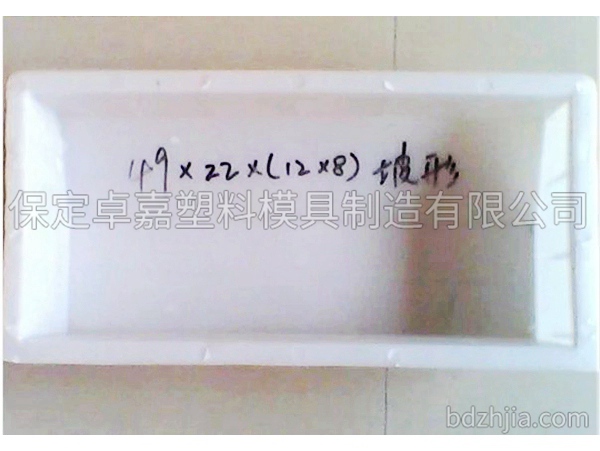 49×22×(12×8)坡形
保定卓嘉塑料模具制造有限公司
bdzhjia.com